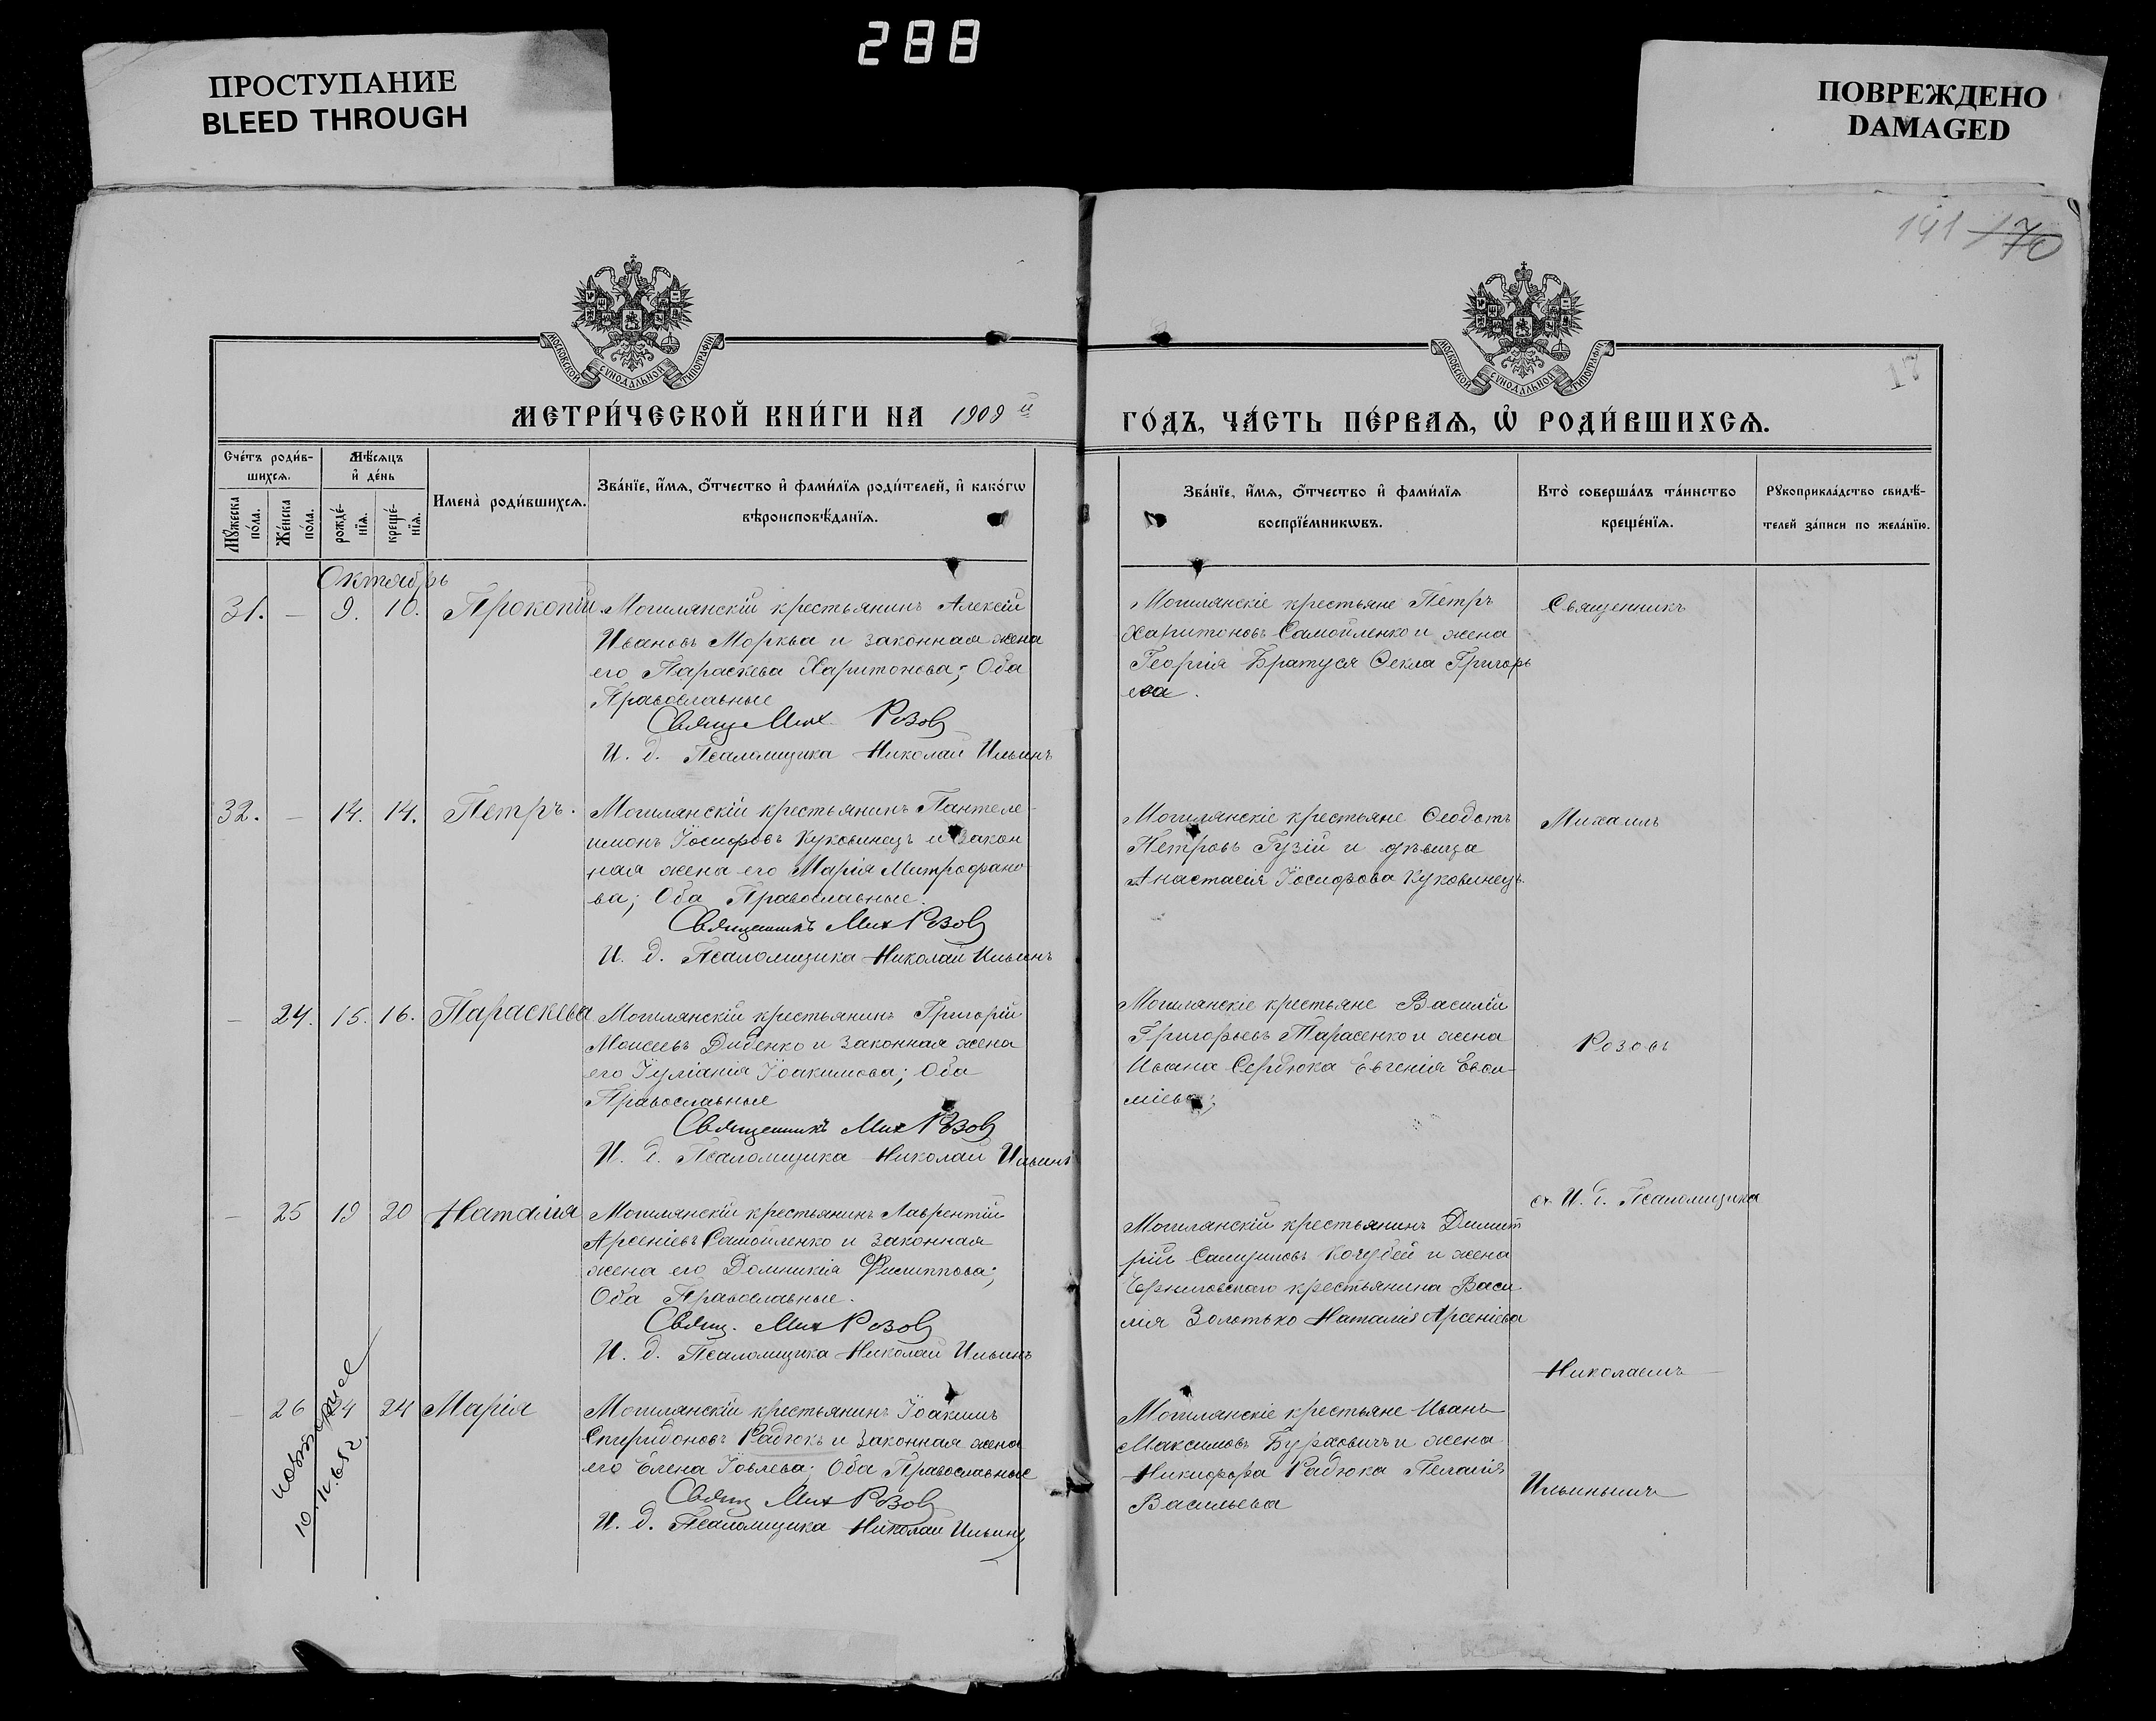 288
ПРОСТУПАНИЕ
BLEED THROUGH
ПОВРЕЖДЕНО
DAMAGED
141 170
17
МОСКОВСКОЙ СѴНОДАЛЬНОЙ ТИПОГРАФІИ
МОСКОВСКОЙ СѴНОДАЛЬНОЙ ТИПОГРАФІИ
МЕТРИ́ЧЕСКОЙ КНИ́ГИ НА 1909 й
ГО́ДЪ, ЧА́СТЬ ПЕ́РВАѦ, Ѡ҆ РОДИ́ВШИХСѦ.
Сче́тъ роди́в-
шихсѧ.
Мѣ́сѧцъ
и҆ де́нь
Мꙋ́жеска
по́ла.
Же́нска
по́ла.
рожде́-
нїѧ.
креще́-
нїѧ.
Имена̀ роди́вшихсѧ.
Зва́нїе, и҆́мѧ, ѻ҆́тчество и҆ фами́лїѧ роди́телей, и҆ како́гѡ
вѣроисповѣ́данїѧ.
Зва́нїе, и҆́мѧ, ѻ҆́тчество и҆ фами́лїѧ
воспрїе́мникѡвъ.
Кто̀ соверша́лъ та́инство
креще́нїѧ.
Рꙋкоприкла́дство свидѣ́-
телей за́писи по жела́нїю.
Октябрь
31. — 9. 10. Прокопій
Могилянскій крестьянинъ Алексій
Ивановъ Морква и законная жена
его Параскева Харитонова; Оба
Православные
Свящ. Мих. Розов
И. д. Псаломщика Николай Ильинъ
Могилянскіе крестьяне Петръ
Харитоновъ Самойленко и жена
Георгія Братуся Ѳекла Григорь
ева.
Священникъ
32. — 14. 14. Петръ.
Могилянскій крестьянинъ Пантеле-
имонъ Іосифовъ Куковинецъ и закон
ная жена его Марія Митрофано
ва; Оба Православные.
Священникъ Мих Розов
И. д. Псаломщика Николай Ильинъ
Могилянскіе крестьяне Ѳеодотъ
Петровъ Гузій и дѣвица
Анастасія Іосифова Куковинецъ.
Михаилъ
— 24. 15. 16. Параскева
Могилянскій крестьянинъ Григорій
Моисеевъ Диденко и законная жена
его Іуліанія Іоакимова; Оба
Православные
Священникъ Мих Розов
И. д. Псаломщика Николай Ильинъ
Могилянскіе крестьяне Василій
Григорьевъ Тарасенко и жена
Ивана Сердюка Евгенія Евѳи-
міева;
Розовъ
— 25 19 20 Наталія
Могилянскій крестьянинъ Лаврентій
Арсеніевъ Самойленко и законная
жена его Домникія Филиппова;
Оба Православные.
Свящ. Мих Розов
И. д. Псаломщика Николай Ильинъ
Могилянскій крестьянинъ Димит
рій Кочубей и жена
Черниговскаго крестьянина Васи
лія Золотько Наталія Арсеніева
съ И. д. Псаломщика
Николаемъ
— 26 24 24 Марія
Могилянскій крестьянинъ Іоакимъ
Спиридоновъ Радюкъ и законная жена
его Елена Іовлева; Оба Православные
Свящ Мих Розов
И. д. Псаломщика Николай Ильинъ
Могилянскіе крестьяне Иванъ
Максимовъ Бурховичъ и жена
Никифора Радюка Пелагія
Васильева
Ильинымъ
повторное